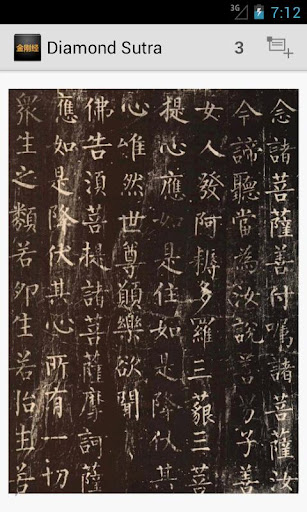 3G 7:12
金刚经 Diamond Sutra 3
念諸菩薩善付囑諸菩薩汝
今諦聽當為汝說善男子善
女人發阿耨多羅三藐三菩
提心應如是住如是降伏其
心唯然世尊願樂欲聞
佛告須菩提諸菩薩摩訶薩
應如是降伏其心所有一切
衆生之類若卵生若胎生若